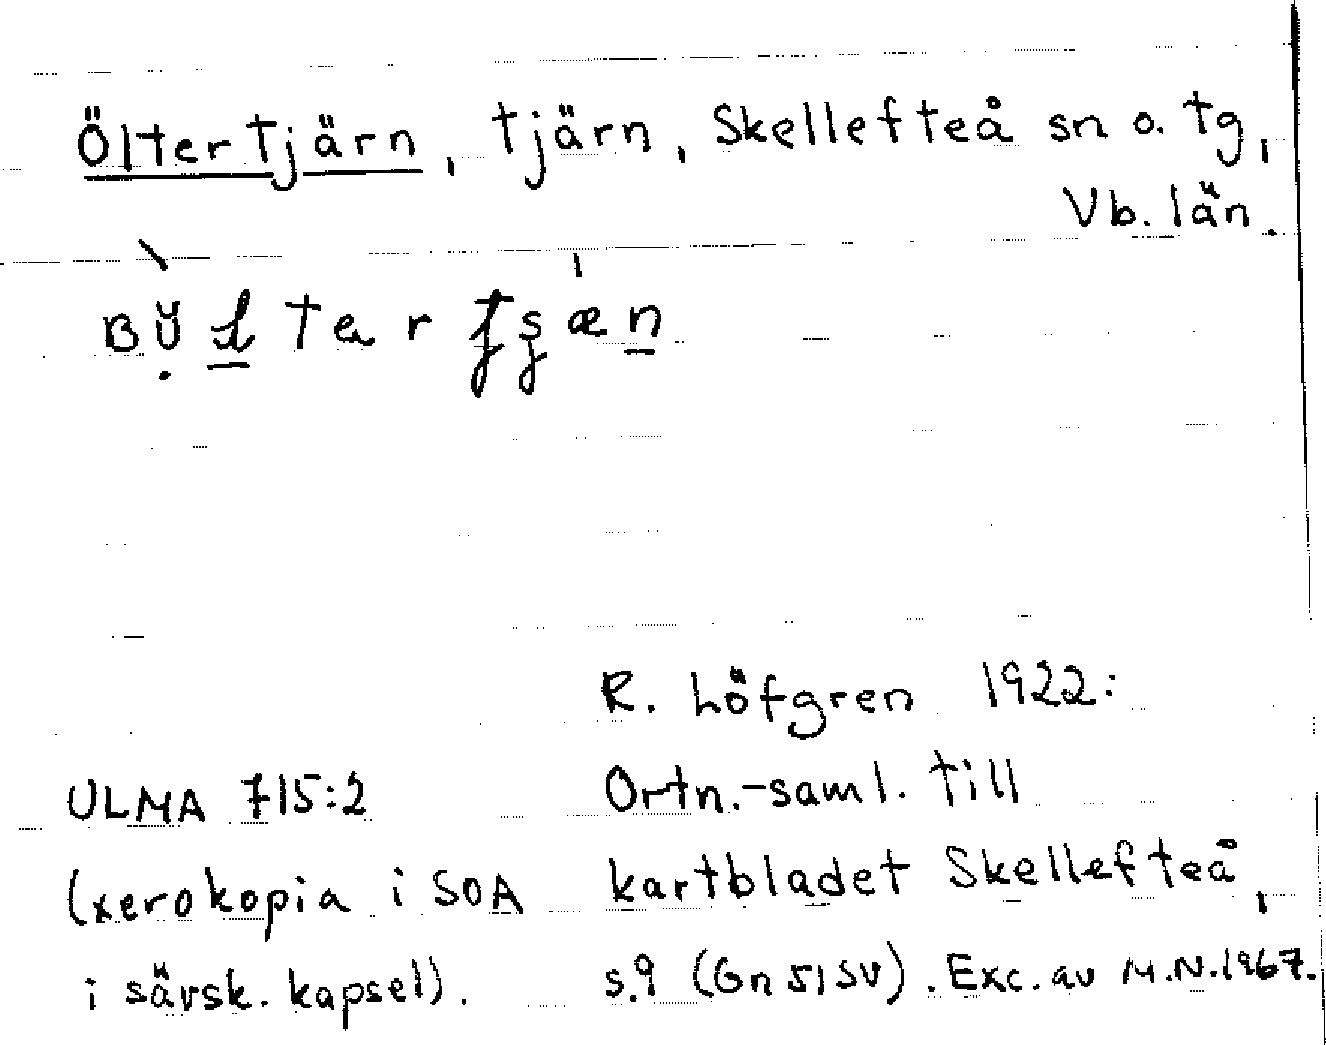 Öltertjärn, tjärn, Skellefteå sn o. tg,
Vb. län.
R. Löfgren 1922:
ULMA 715:2 Ortn.-saml. till
(xerokopia i SOA kartbladet Skellefteå,
i särsk. kapsel). s.9 (Gn 51 SV). Exc. av M.N. 1967.